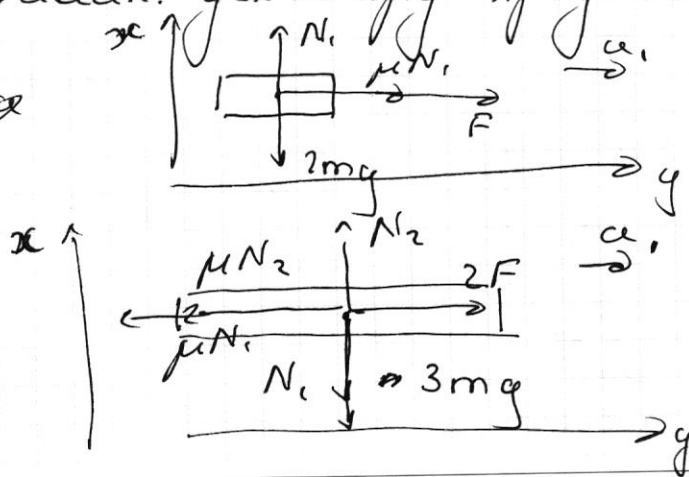 x N₁
μN₁ a₁
F
2mg y
x N₂ a₁
μN₂ 2F
μN₁
N₁ 3mg
y